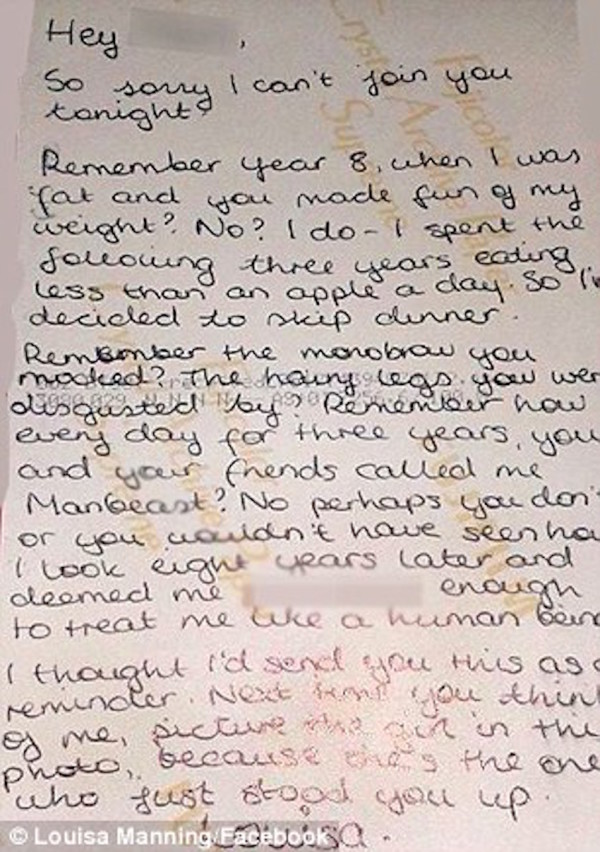 Hey ,
So sorry I can't join you
tonight.
Remember year 8, when I was
fat and you made fun of my
weight? No? I do - I spent the
following three years eating
less than an apple a day. So I'
decided to skip dinner.
Remember the monobrow you
mocked? The hairy legs you wer
disgusted by? Remember how
every day for three years, you
and your friends called me
Manbeast? No perhaps you don'
or you wouldn't have seen ho
I look eight years later and
deemed me enough
to treat me like a human being
I thought I'd send you this as a
reminder. Next time you think
of me, picture the girl in this
photo, because she's the one
who just stood you up.
Louisa.
© Louisa Manning/Facebook